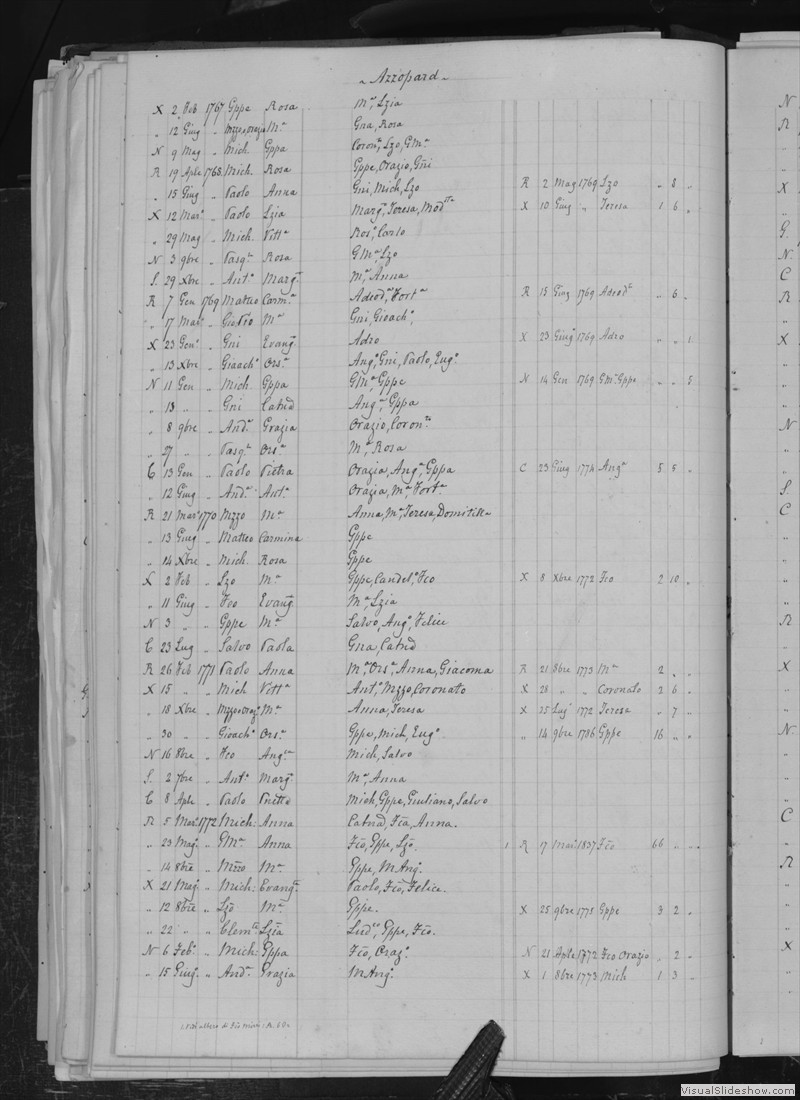 Azzopard
X 2 Feb 1767 Gppe Rosa Mª, Lzia
" 12 Giug " Mzzo, Orazio Mª Gna, Rosa
N 9 Mag " Mich. Gppa Coronª, Lzo, GMª
R 19 Aple 1768 Mich. Rosa Gppe, Orazio, Gni
" 15 Giug " Paolo Anna Gni, Mich, Lzo R 2 Mag 1769 Lzo " 8 "
X 12 Marº " Paolo Lzia Margª, Teresa, Modtta X 10 Giug " Teresa 1 6 "
" 29 Mag " Mich. Vittª Rosª, Carlo
N 3 9bre " Pasqª Rosa GMª, Lzo
S. 29 Xbre " Antº Margª Mª, Anna
R 7 Gen 1769 Matteo Carmª Adeodª, Fortª R 15 Giug 1769 Adeodª " 6 "
" 17 Marº " Mª Gni, Gioachº
X 23 Genº " Gni Evangª Adeo X 23 Giugº 1769 Adeo " " 1
" 13 Xbre " Gioachº Orsª Angº, Gni, Paolo, Eugº
N 11 Gen " Mich. Gppa GMª Gppe N 14 Gen 1769 GMª Gppe " " 5
" 13 " " Gni Catnd Angª, Gppa
" 8 9bre " Andª Grazia Orazio, Coronta
" 27 " " Pasqª Orsª Mª, Rosa
C 13 Gen " Paolo Pietra Orazia, Angª, Gppa C 23 Giug 1774 Angª 5 5 "
" 12 Giug " Andª Antª Orazia, Mª, Fortª
R 21 Marº 1770 Mzzo Mª Anna, Mª, Teresa, Domitilla
" 13 Giug " Matteo Carmina Gppe
" 14 Xbre " Mich. Rosa Gppe
X 2 Feb " Lzo Mª Gppe, Candelº, Fco X 8 Xbre 1772 Fco 2 10 "
" 11 Giug " Fco Evangª Mª, Lzia
N 3 " " Gppe Mª Salvo, Angº, Felice
C 23 Lug " Salvo Paola Gna, Catnd
R 26 Feb 1771 Paolo Anna Mª, Orsª, Anna, Giacoma R 21 8bre 1773 Mª 2 " "
X 15 " " Mich Vittª Antº, Mzzo, Coronato X 28 " " Coronato 2 6 "
" 18 Xbre " Mzzo, Orazº Mª Anna, Teresa X 25 Lugº 1772 Teresa " 7 "
" 30 " " Gioachº Orsª Gppe, Mich, Eugº " 14 9bre 1786 Gppe 16 " "
N 16 8bre " Fco Angca Mich, Salvo
S. 2 7bre " Antº Margª Mª, Anna
C 8 Aple " Paolo Mich, Gppe, Giuliano, Salvo
R 5 Marº 1772 Mich: Anna Catnd, Fca, Anna.
" 23 Magº " GMª Anna Fco, Gppe, Lzo. 1 R 17 Marº 1837 Fco 66 " "
" 14 8bre " Mzzo Mª Gppe, MAngº.
X 21 Mag " Mich: Evangª Paolo, Fco, Felice.
" 12 8bre " Lzo Mª Gppe. X 25 9bre 1775 Gppe 3 2 "
" 22 " " Clemte Lzia Ludco, Gppe, Fco.
N 6 Febº " Mich: Gppa Fco, Orazº. N 21 Aple 1772 Fco Orazio " 2 "
" 15 Giugº " Andª Grazia MAngº. X 1 8bre 1773 Mich 1 3 "
VisualSlideshow.com